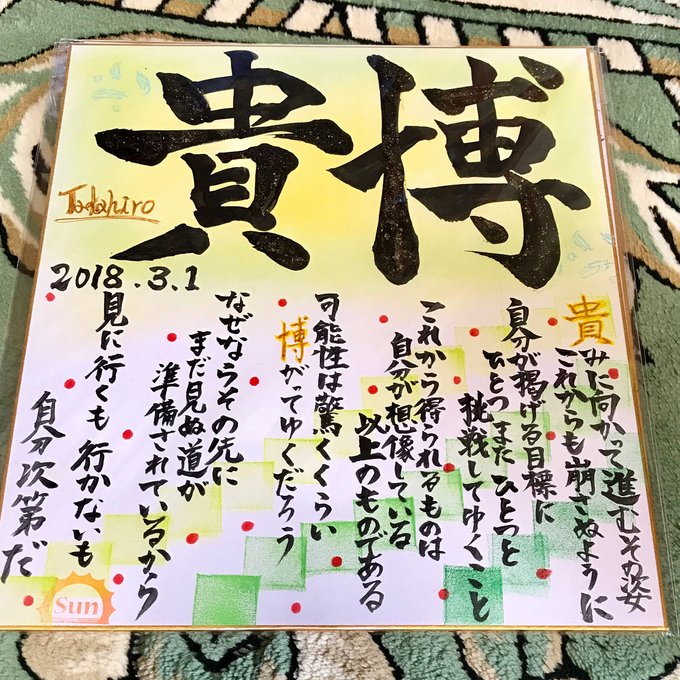 貴博
Tadahiro
2018.3.1
貴みに向かって進むその姿
これからも崩さぬように
自分が掲げる目標に
ひとつ またひとつと
挑戦してゆくこと
これから得られるものは
自分が想像している
以上のものである
可能性は驚くくらい
博がってゆくだろう
なぜならその先に
まだ見ぬ道が
準備されているから
見に行くも 行かないも
自分次第だ
Sun